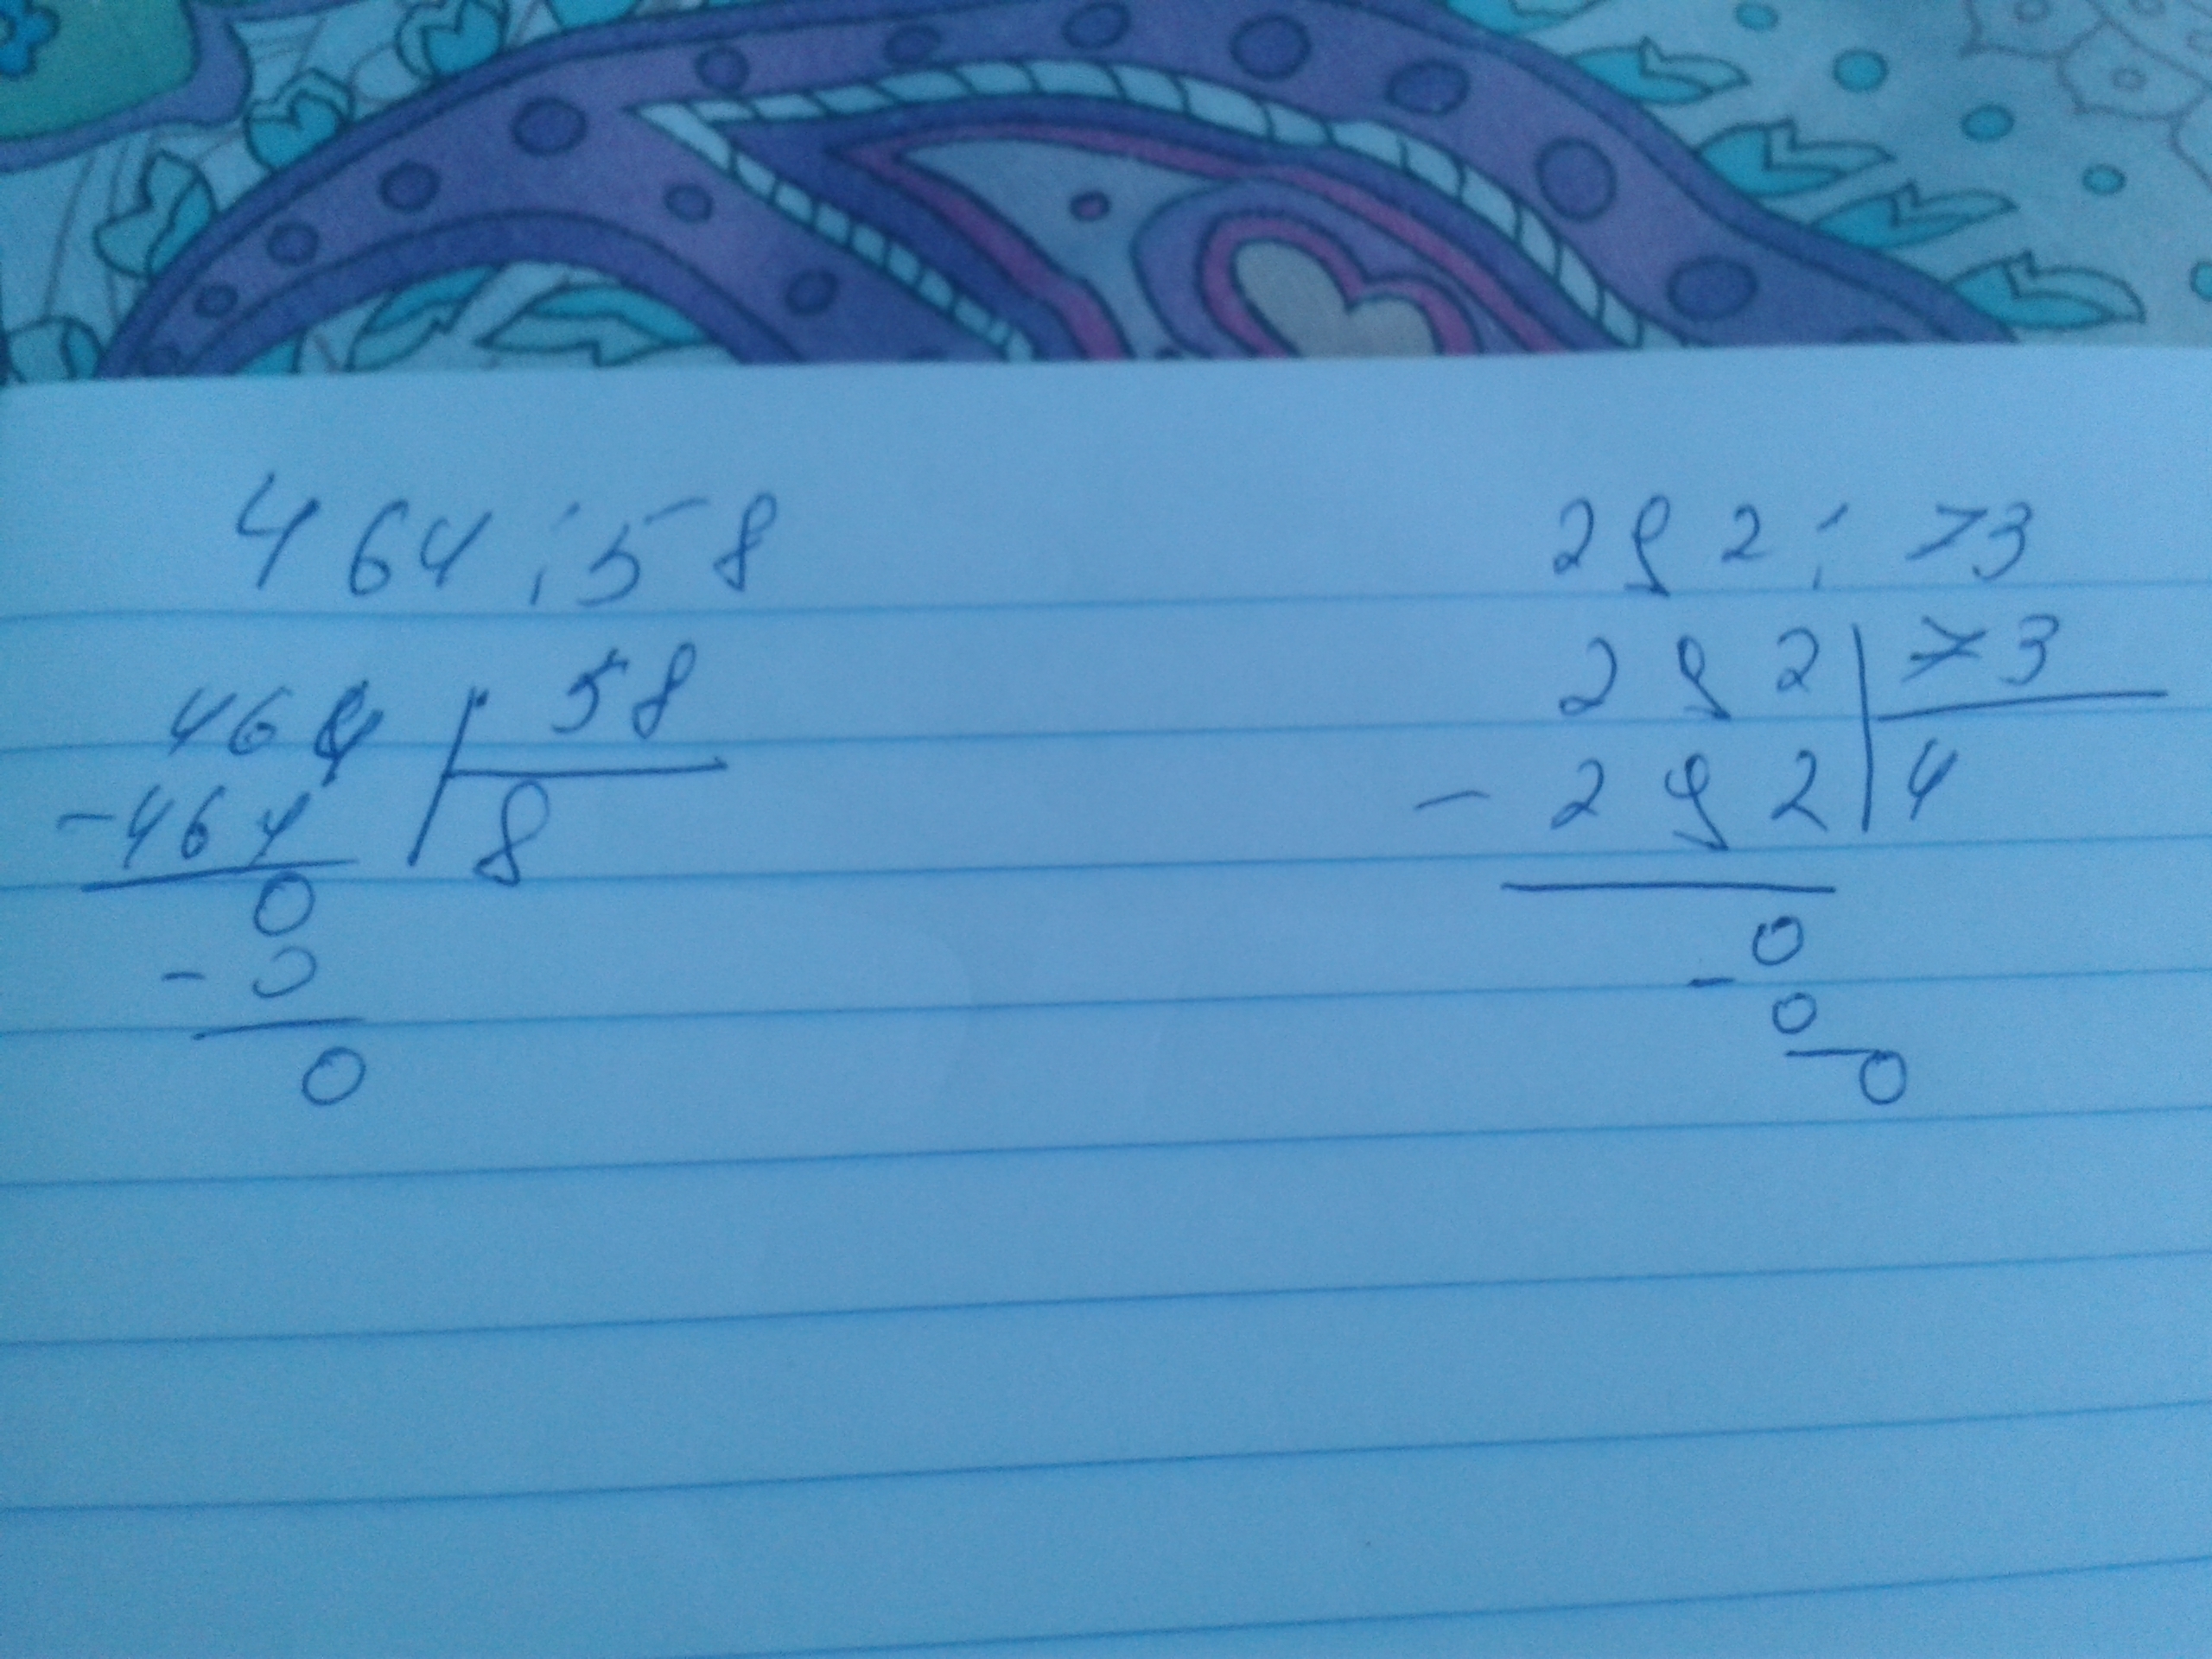 464:58
464 58
-464 8
0
-0
0
292:73
292 73
-292 4
0
-
0
0